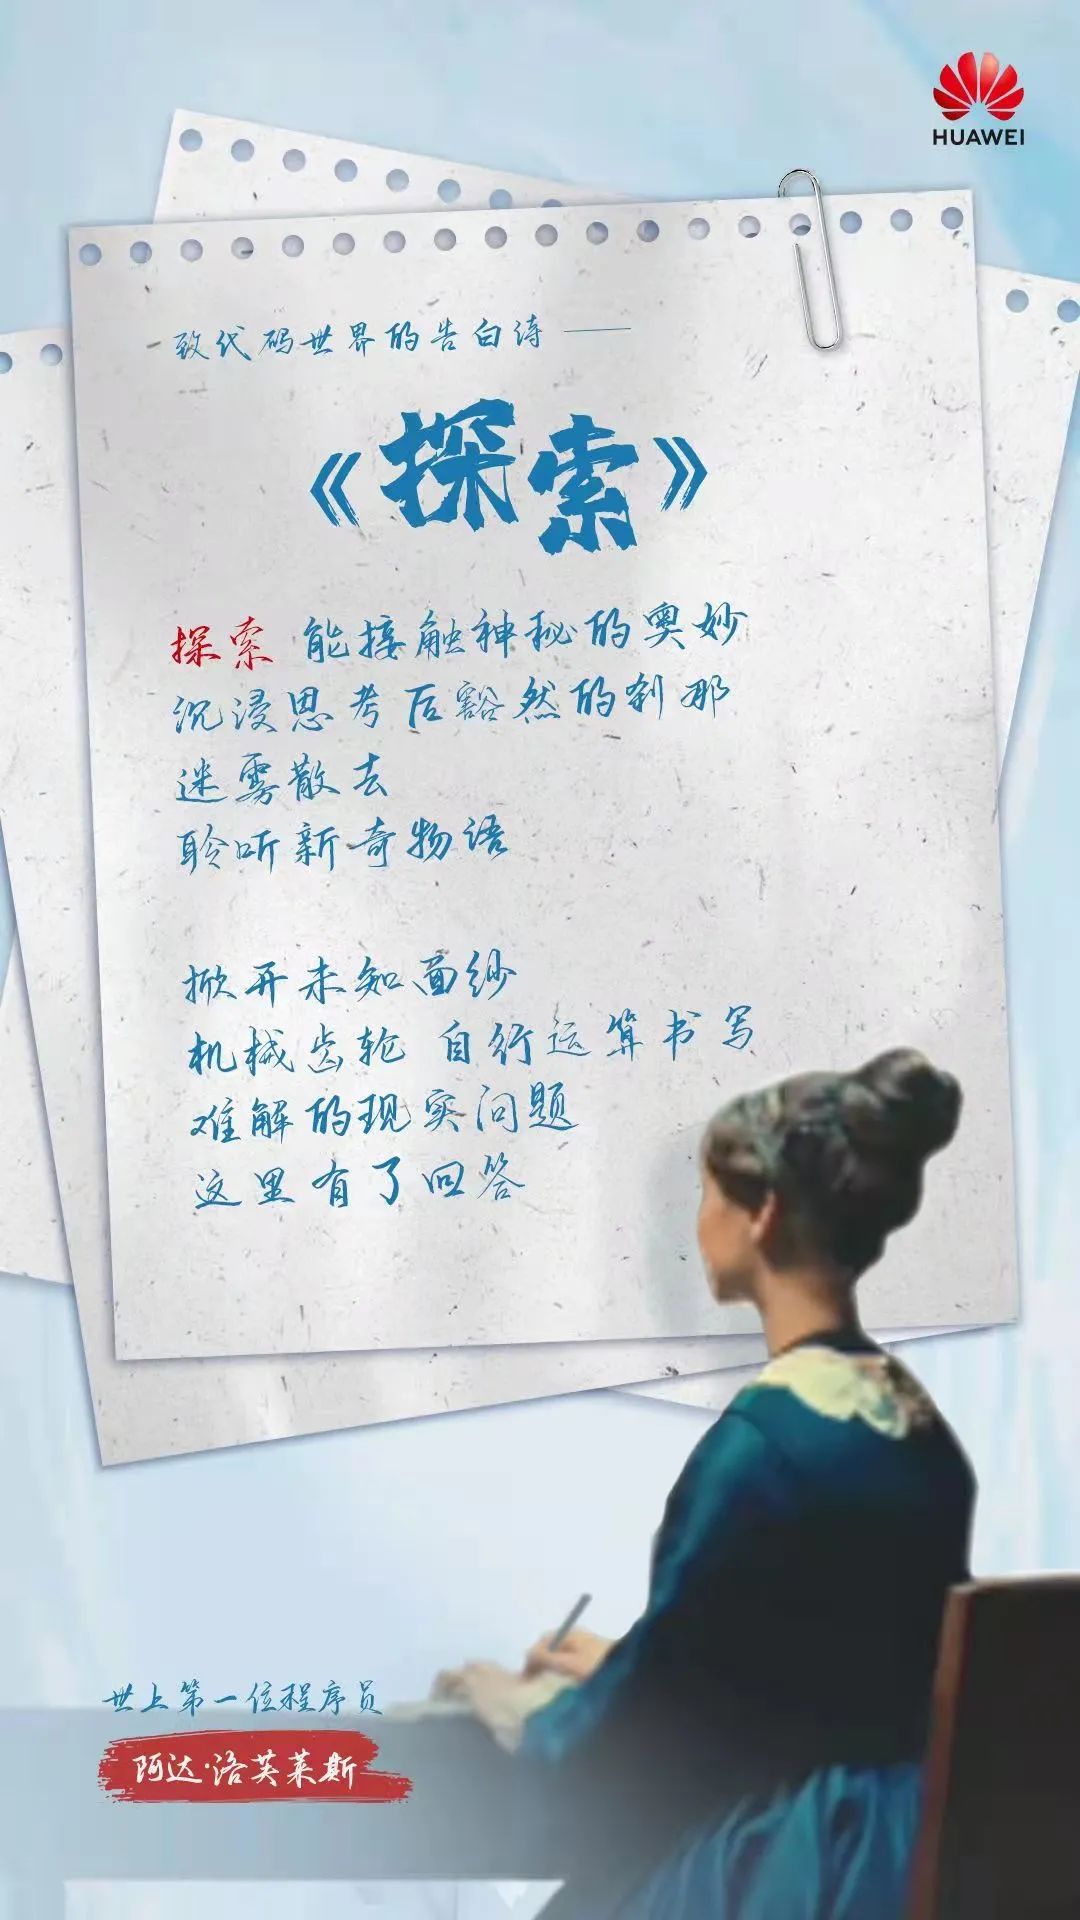 HUAWEI
致代码世界的告白诗——
《探索》
探索 能接触神秘的奥妙
沉浸思考后豁然的刹那
迷雾散去
聆听新奇物语
掀开未知面纱
机械齿轮 自行运算书写
难解的现实问题
这里有了回答
世上第一位程序员
阿达·洛芙莱斯